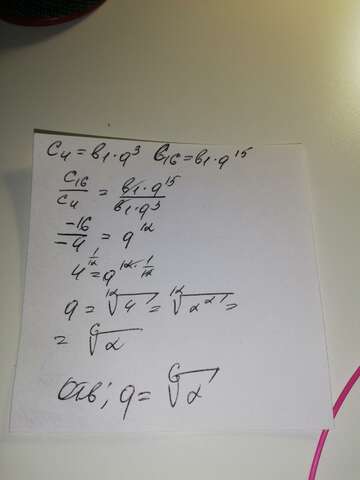 C₄ = b₁·q³ C₁₆ = b₁·q¹⁵
C₁₆/C₄ = b₁·q¹⁵/b₁·q³
-16/-4 = q¹²
4^(1/12) = q^(12·1/12)
q = ¹²√4 = ¹²√2² =
= ⁶√2
Отв; q = ⁶√2